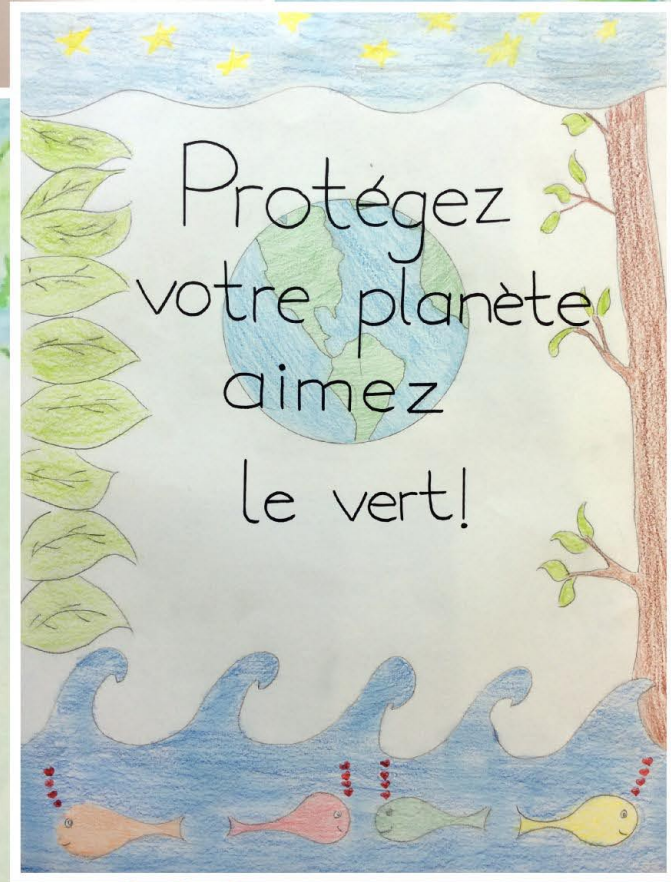 Protégez
votre planète
aimez
le vert!